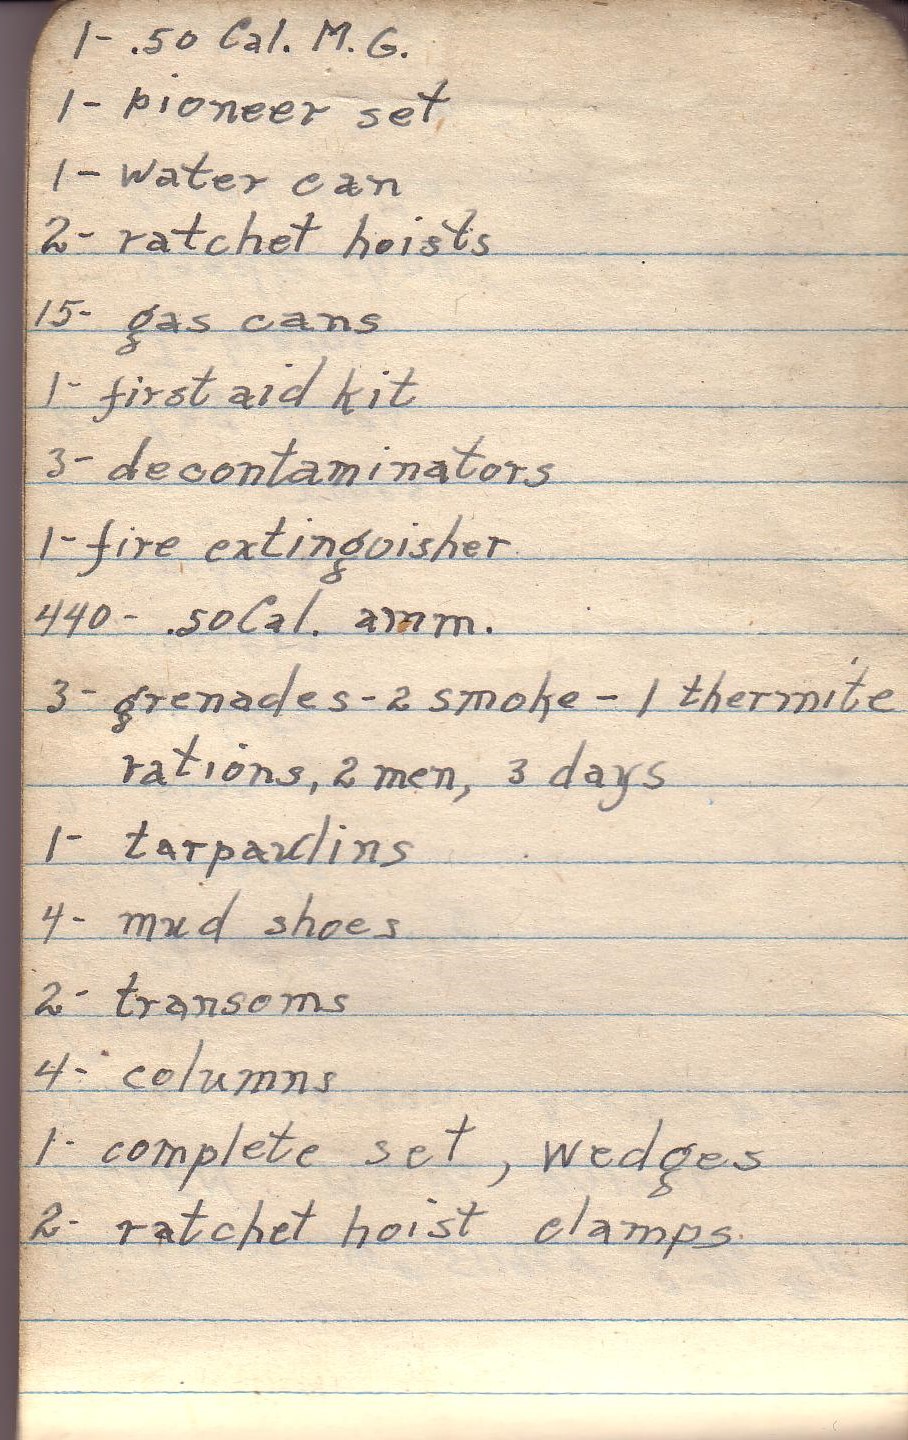 1- .50 Cal. M.G.
1- pioneer set
1- water can
2- ratchet hoists
15- gas cans
1- first aid kit
3- decontaminators
1- fire extinguisher
440- .50 Cal. amm.
3- grenades-2 smoke - 1 thermite
rations, 2 men, 3 days
1- tarpaulins
4- mud shoes
2- transoms
4- columns
1- complete set, wedges
2- ratchet hoist clamps.